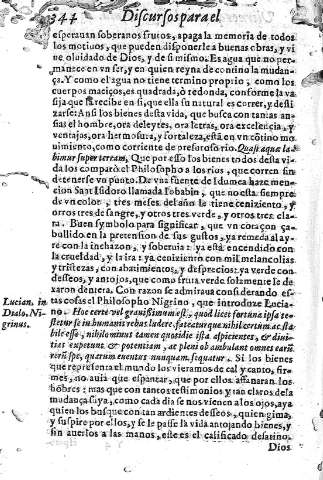 344 Discursos para el
esperauan soberanos frutos, apaga la memoria de todos
los motiuos, que pueden disponerle a buenas obras, y vi
ue oluidado de Dios, y de si mismo. Es agua que no per-
manece en vn ser, y en quien reyna de contino la mudan-
ça. Y como el agua no tiene termino propio, como los
cuerpos maciços, es quadrada, ò redonda, conforme la va
sija que la recibe en si, que ella su natural es correr, y desli
zarse: Ansi los bienes desta vida, que busca con tantas an-
sias el hombre, ora deleytes, ora letras, ora excelẽcia, y
ventajas, ora hermosura, y fortaleza, està en vn cõtino mo
uimiento, como corriente de presuroso rio. Quasi aqua la-
bimur super terram, Que por esso los bienes todos desta vi-
da los comparò el Philosopho a los rios, que corren sin
detenerse vn punto. De vna fuente de Idumea haze men-
cion Sant Isidoro llamada Iobabin, que no està siempre
de vn color, tres meses del año le tiene ceniziento, y
otros tres de sangre, y otros tres verde, y otros tres cla-
ra. Buen symbolo para significar, que vn coraçon ça-
bullido en la pretension de sus gustos, ya remeda al ay-
re con la inchazon, y soberuia: ya està encendido con
la crueldad, y la ira: ya ceniziento con mil melancolias
y tristezas, con abatimientos, y desprecios: ya verde con
desseos, y antojos, que como fruta verde solamente le de
xaron dentera. Con razon se admiraua considerando es-
Lucian. in
Dialo. Ni-
grinus.
tas cosas el Philosopho Nigrino, que introduze Lucia-
no. Hoc certe vel grauissimum est, quod licet fortuna ipsa te-
stetur se in humanis rebus ludere, fateaturque nihil certum ac sta
bile esse, nihilominus tamen quotidie ista aspicientes, & diui-
tias expetunt & potentiam, ac pleni obambulant omnes earũ
rerũ spe, quarum euentus nunquam sequatur. Si los bienes
que representa el mundo los vieramos de cal y canto, fir-
mes, no auia que espantar, que por ellos affanaran los
hõbres: mas que con tantos testimonios y tan claros de la
mudança suya, como cada dia se nos vienen a los ojos, aya
quien los busque con tan ardientes desseos, quien gima,
y suspire por ellos, y se le passe la vida antojando bienes, y
sin auerlos a las manos, este es el calificado desatino.
Dios